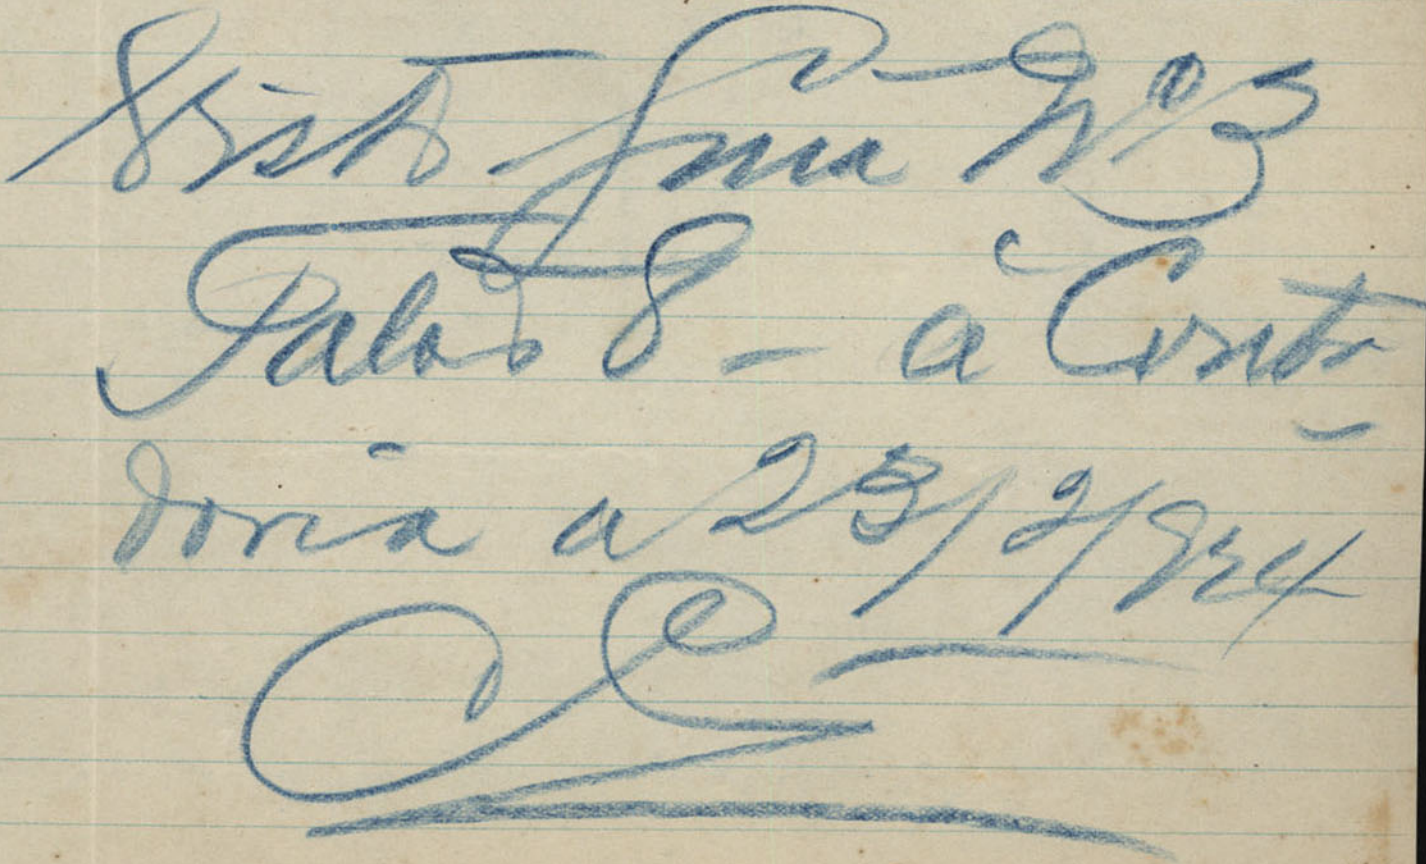 Visto Guia Nº 3
Talão 8 - à Conta-
doria a 23/2/924